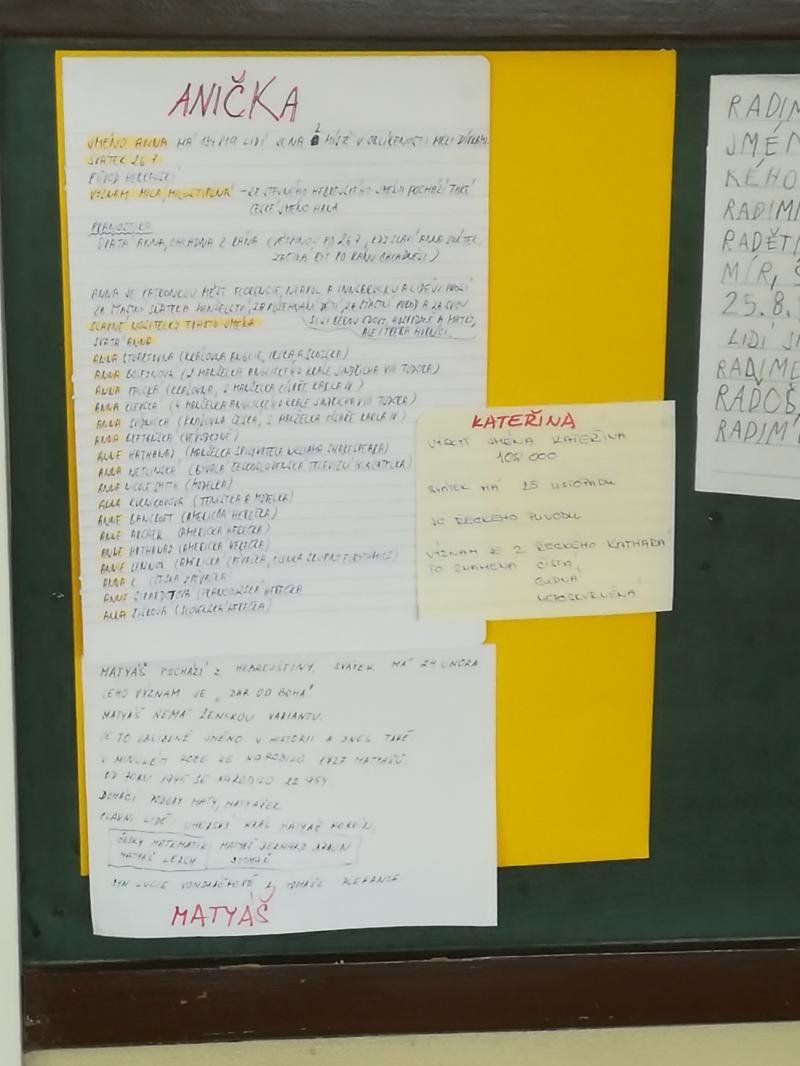 ANIČKA
JMÉNO ANNA MÁ 134 819 LIDÍ JE NA 2 MÍSTĚ V OBLÍBENOSTI MEZI DÍVKAMI
SVÁTEK 26 7
PŮVOD HEBREJSKÝ
VÝZNAM MILÁ, MILOSTIPLNÁ - ZE STEJNÉHO HEBREJSKÉHO JMÉNA POCHÁZÍ TAKÉ
ČESKÉ JMÉNO HANA
PRANOSTIKA
SVATÁ ANNA, CHLADNA Z RÁNA (VĚTŠINOU PO 26.7, KDY SLAVÍ ANNA SVÁTEK,
ZAČÍNÁ BÝT PO RÁNU CHLADNĚJI)
ANNA JE PATRONKOU MĚST FLORENCIE, NEAPOL A INNSBRUCKU A LIDÉ JI PROSÍ
ZA ŠŤASTNÝ SVÁTEK MANŽELSTVÍ, ZA POŽEHNÁNÍ DĚTÍ, ZA ŠŤASTNÝ POROD A ZA
SLAVNÉ NOSITELKY TOHOTO JMÉNA
SI JI BEROU VDOVY, HOSPODYNĚ A MATKY,
ALE I TŘEBA HORNÍCI.
SVATÁ ANNA
ANNA STUARTOVNA (KRÁLOVNA ANGLIE, IRSKA A SKOTSKA)
ANNA BOLEYNOVÁ (2 MANŽELKA ANGLICKÉHO KRÁLE JINDŘICHA VIII TUDORA)
ANNA FALCKÁ (KRÁLOVNA, 2 MANŽELKA CÍSAŘE KARLA IV)
ANNA KLEVSKÁ (4 MANŽELKA ANGLICKÉHO KRÁLE JINDŘICHA VIII TUDORA)
ANNA SVÍDNICKÁ (KRÁLOVNA ČESKÁ, 3 MANŽELKA CÍSAŘE KARLA IV)
ANNA
ANNE HATHAWAY (MANŽELKA SPISOVATELE WILLIAMA SHAKESPEARA)
ANNA NETLINSKÁ (BÝVALÁ ČESKOSLOVENSKÁ TELEVIZNÍ HLASATELKA)
ANNA NICOLE SMITH (MODELKA)
ANNA KURNIKOVOVÁ (TENISTKA A MODELKA)
ANNE BANCROFT (AMERICKÁ HEREČKA)
ANNE ARCHER (AMERICKÁ HEREČKA)
ANNE HATHAWAY (AMERICKÁ HEREČKA)
ANNIE LENNOX (AMERICKÁ ZPĚVAČKA, ČLENKA SKUPINY EURYTHMICS)
ANNA K. (ČESKÁ ZPĚVAČKA)
ANNIE GIRARDOTOVÁ (FRANCOUZSKÁ HEREČKA)
ANNA ŠIŠKOVÁ (SLOVENSKÁ HEREČKA)
KATEŘINA
VÝSKYT JMÉNA KATEŘINA
108 000
SVÁTEK MÁ 25 LISTOPADU
JE ŘECKÉHO PŮVODU
VÝZNAM JE Z ŘECKÉHO KATHARÁ
TO ZNAMENÁ ČISTÁ,
CUDNÁ
NEPOSKVRNĚNÁ
MATYÁŠ POCHÁZÍ Z HEBREJŠTINY, SVÁTEK MÁ 24 ÚNORA
JEHO VÝZNAM JE „DAR OD BOHA"
MATYÁŠ NEMÁ ŽENSKOU VARIANTU.
JE TO OBLÍBENÉ JMÉNO V HISTORII A DNES TAKÉ
V MINULÉM ROCE SE NARODILO 1727 MATYÁŠŮ.
OD ROKU 1945 SE NARODILO 22 954
DOMÁCÍ PODOBY MATY, MATYÁŠEK
SLAVNÍ LIDÉ UHERSKÝ KRÁL MATYÁŠ KORVÍN,
ČESKÝ MATEMATIK MATYÁŠ BERNARD BRAUN
MATYÁŠ LERCH SOCHAŘ
SYN LUCIE VONDRÁČKOVÉ A TOMÁŠE PLEKANCE.
MATYÁŠ
RADIM
JMÉN
KÉHO
RADIMI
RADĚTI
MÍR, Š
25.8.
LIDÍ JM
RADIME
RADOŠ
RADIM